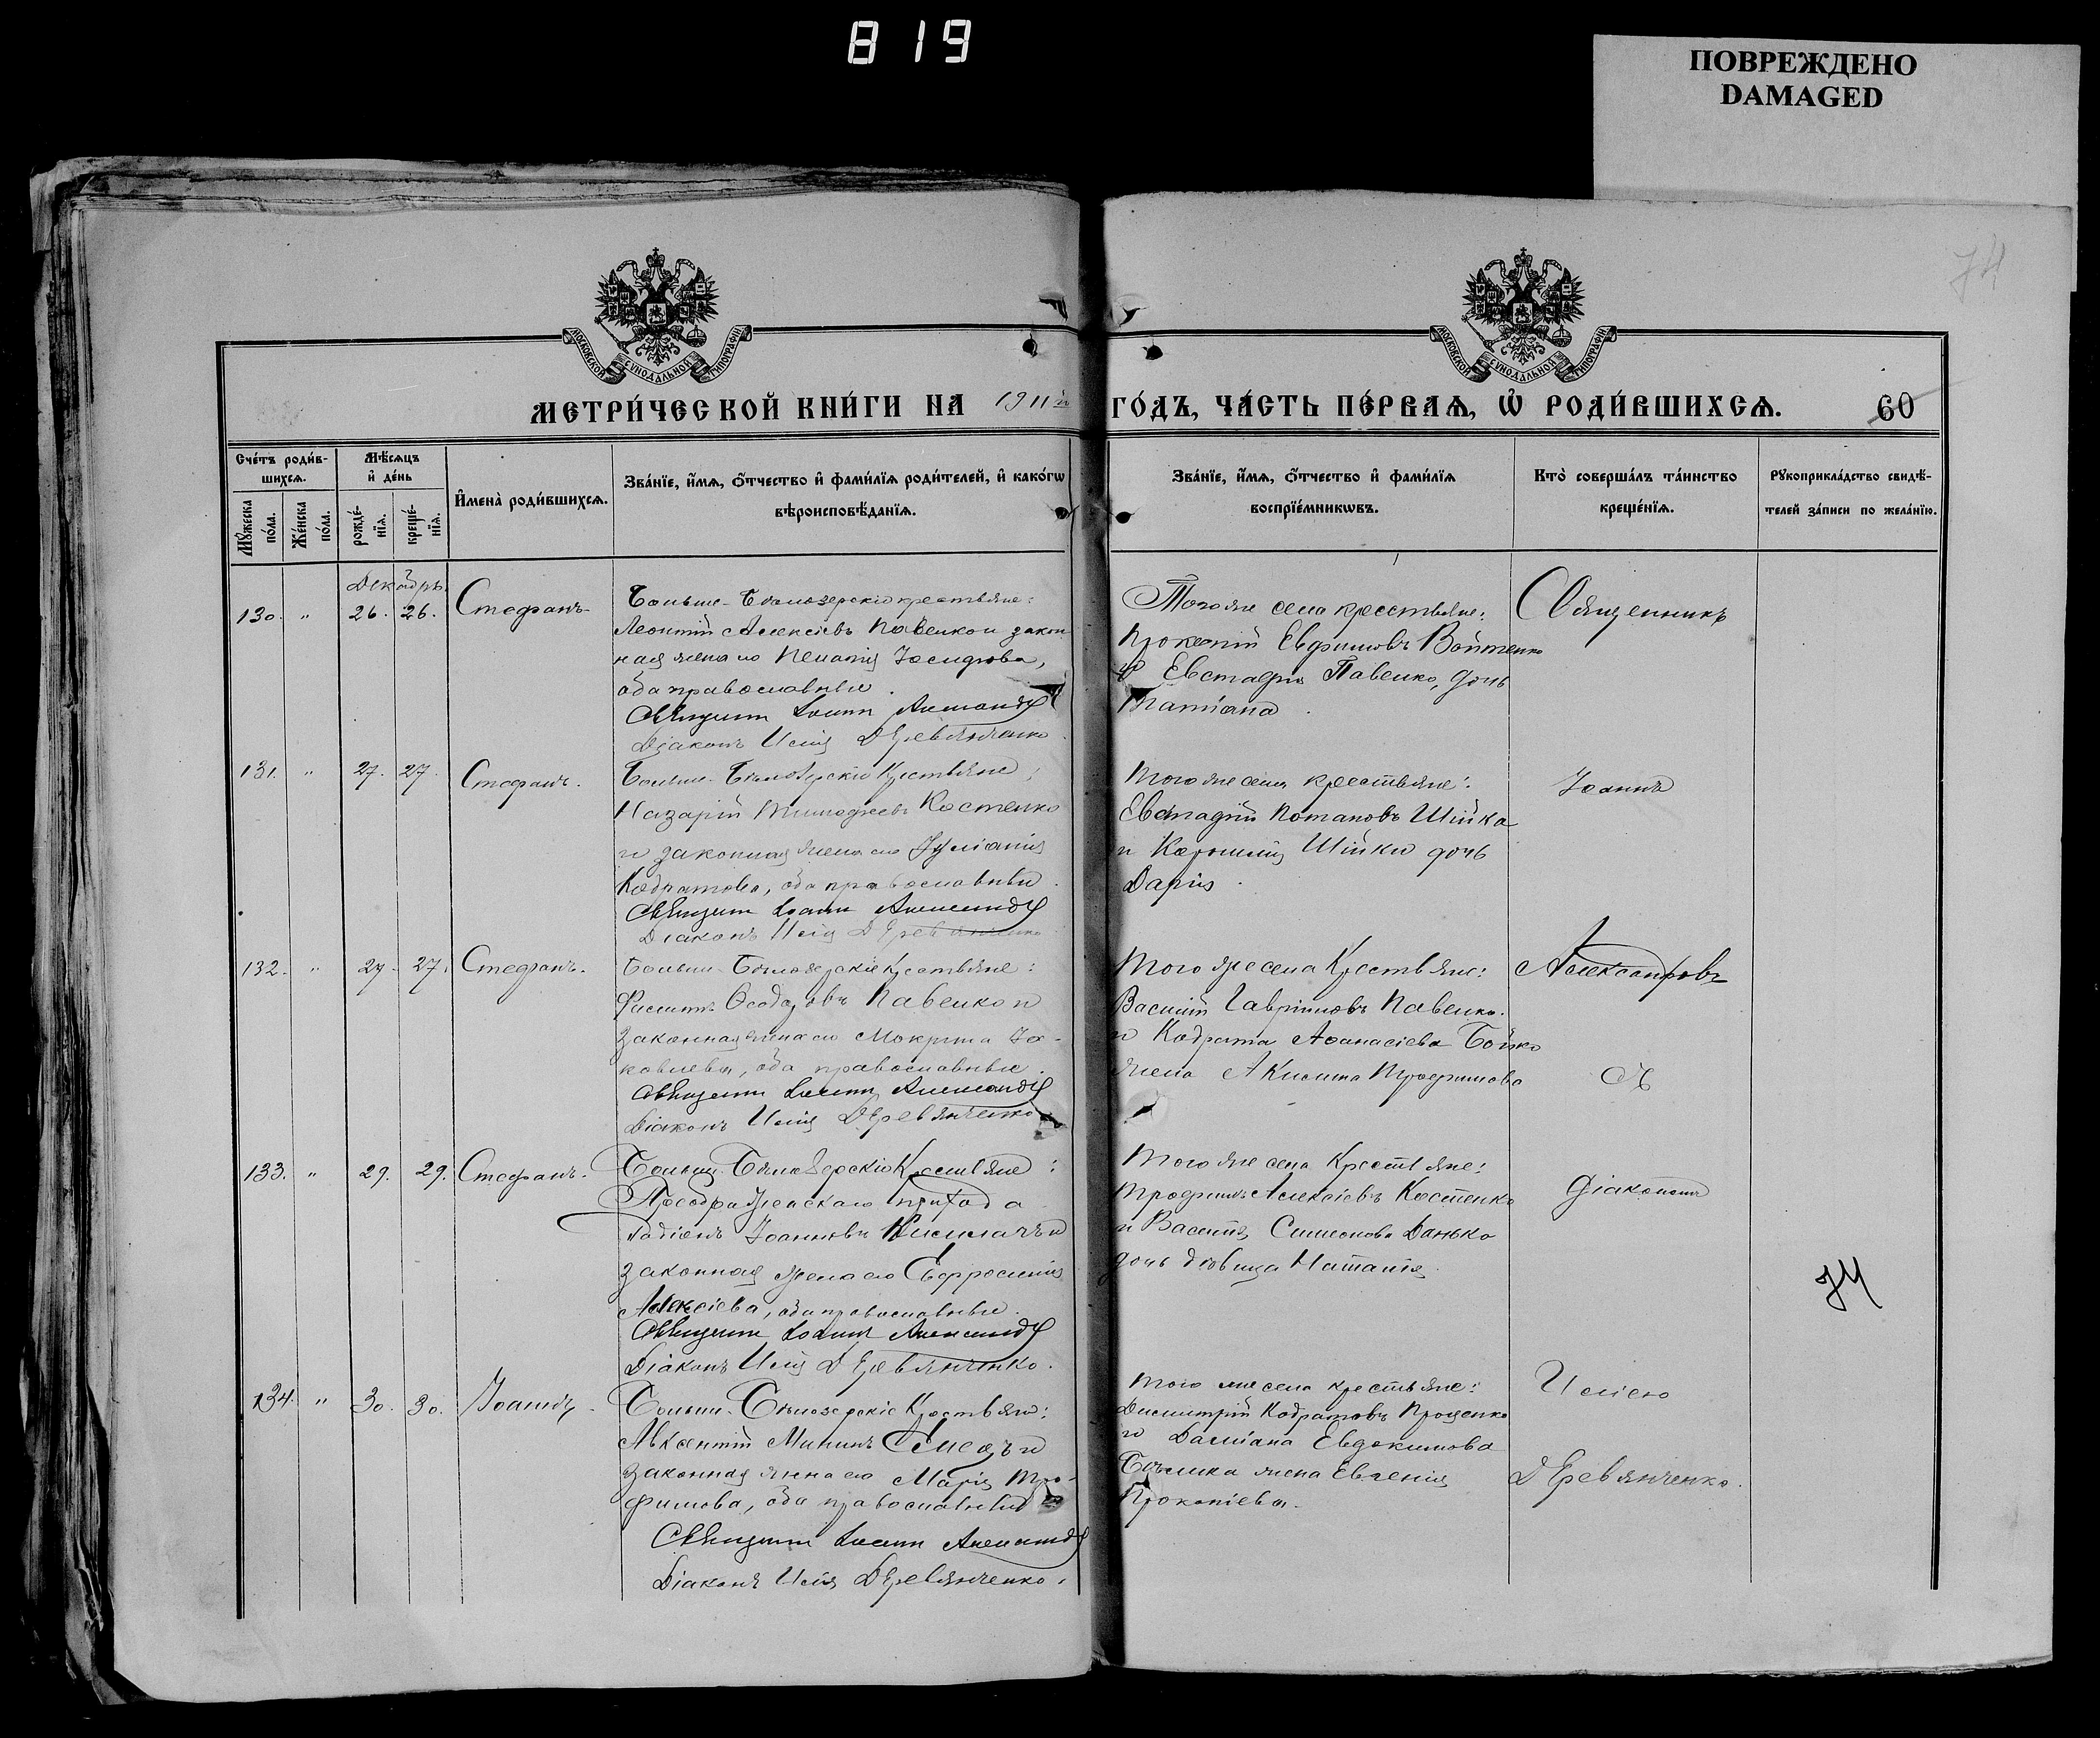 819
ПОВРЕЖДЕНО
DAMAGED
74
МОСКОВСКОЙ СѴНОДАЛЬНОЙ ТИПОГРАФІИ
МОСКОВСКОЙ СѴНОДАЛЬНОЙ ТИПОГРАФІИ
МЕТРИ́ЧЕСКОЙ КНИ́ГИ НА 1911й ГО́ДЪ, ЧА́СТЬ ПЕ́РВАЯ, Ѡ҆ РОДИ́ВШИХСЯ. 60
Сче́тъ роди́в-
шихся.
Мꙋ́жеска по́ла.
Же́нска по́ла.
Мѣ́сяцъ
и҆ де́нь
рожде́-
нїя.
креще́-
нїя.
И҆мена̀ роди́вшихся.
Зва́нїе, и҆́мя, ѻ҆́тчество и҆ фами́лїя роди́телей, и҆ како́гѡ
вѣроисповѣ́данїя.
Зва́нїе, и҆́мя, ѻ҆́тчество и҆ фами́лїя
воспрїе́мникѡвъ.
Кто̀ соверша́лъ та́инство
креще́нїя.
Рꙋкоприкла́дство свидѣ́-
телей за́писи по жела́нїю.
Декабрь.
130. " 26. 26. Стефанъ
Больше-Бѣлозерскіе крестьяне:
Леонтій Алексіевъ Павленко и закон
ная жена его Пелагія Іосифова,
оба православные.
Священникъ Іоаннъ Александр
Діаконъ Илія Деревянченко
Того же села крестьяне:
Прокопій Евфимовъ Войтенко
и Евстафія Павленко, дочь
Татіана.
Священникъ
131. " 27. 27. Стефанъ.
Больше-Бѣлозерскіе Крестьяне:
Назарій Тимофеевъ Костенко
и законная жена его Іуліанія
Кодратова, оба православные.
Священникъ Іоаннъ Александр
Діаконъ Илія Деревянченко
Того же села крестьяне:
Евстафій Потаповъ Шійка
и Корнилія Шійки дочь
Дарія.
Іоаннъ
132. " 27. 27. Стефанъ.
Больше-Бѣлозерскіе Крестьяне:
Филиппъ Ѳеодоровъ Павленко и
законная жена его Мокрина Іа-
ковлева, оба православные.
Священникъ Іоаннъ Александр
Діаконъ Илія Деревянченко
Того же села Крестьяне:
Василій Гавріиловъ Павленко
и Кодрата Аѳанасіева Бойко
жена Акилина Трофимова
Александровъ
съ
133. " 29. 29. Стефанъ.
Больше-Бѣлозерскіе Крестьяне:
Преображенскаго прихода
Радіонъ Іоанновъ Кислачъ и
законная жена его Евфросинія
Алексіева, оба православные.
Священникъ Іоаннъ Александр
Діаконъ Илія Деревянченко.
Того же села Крестьяне:
Трофимъ Алексіевъ Костенко
и Василія Симеонова Данько
дочь дѣвица Наталія.
Діакономъ
74
134. " 30. 30. Іоаннъ
Больше-Бѣлозерскіе Крестьяне:
Авксентій Мининъ и
законная жена его Марія Тро-
фимова, оба православные
Священникъ Іоаннъ Александр
Діаконъ Илія Деревянченко.
Того же села крестьяне:
Димитрій Кодратовъ Проценко
и Даміана Евдокимова
жена Евгенія
Прокопіева.
Иліею
Деревянченко.